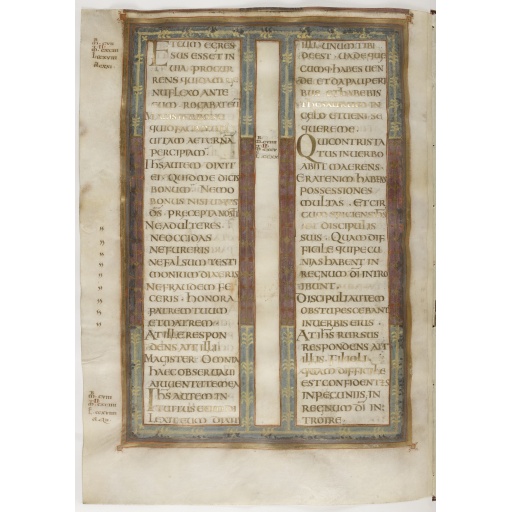 ET CUM EGRES
SUS ESSET IN
VIA PROCUR
RENS QUIDAM
NU FLEXO ANTE
EUM ROGABAT EU
VITAM AETERNA
PERCIPIAM
IHS AUTEM DIXIT
EI QUID ME DICIS
BONUM NEMO
BONUS NISI UNUS
DS PRECEPTA NOSTI
NE ADULTERES
NE OCCIDAS
NE FURERIS
NE FALSUM TESTI
MONIUM DIXERIS
NE FRAUDEM FE
CERIS HONORA
PATREM TUUM
ET MATREM
AT ILLE RESPON
DENS AIT ILLI
MAGISTER OMNIA
HAEC OBSERVAVI
A IUVENTUTE MEA
IHS AUTEM IN
TUITUS EUM DI
LEXIT EUM DIXIT
ILLI UNUM TIBI
DEEST VADE QUE
CUMQ HABES VEN
DE ET DA PAUPERI
BUS ET HABEBIS
CELO ET VENI SE
QUERE ME
QUI CONTRISTA
TUS IN VERBO
ABIIT MAERENS
ERAT ENIM HABENS
POSSESSIONES
MULTAS ET CIR
CUMSPICIENS IHS
AIT DISCIPULIS
SUIS QUAM DIF
FICILE QUI PECU
NIAS HABENT IN
REGNUM DI INTRO
IBUNT
DISCIPULI AUTEM
OBSTUPESCEBANT
IN VERBIS EIUS
AT IHS RURSUS
RESPONDENS AIT
ILLIS FILIOLI
QUAM DIFFICILE
EST CONFIDENTES
IN PECUNIIS IN
REGNUM DI IN
TROIRE